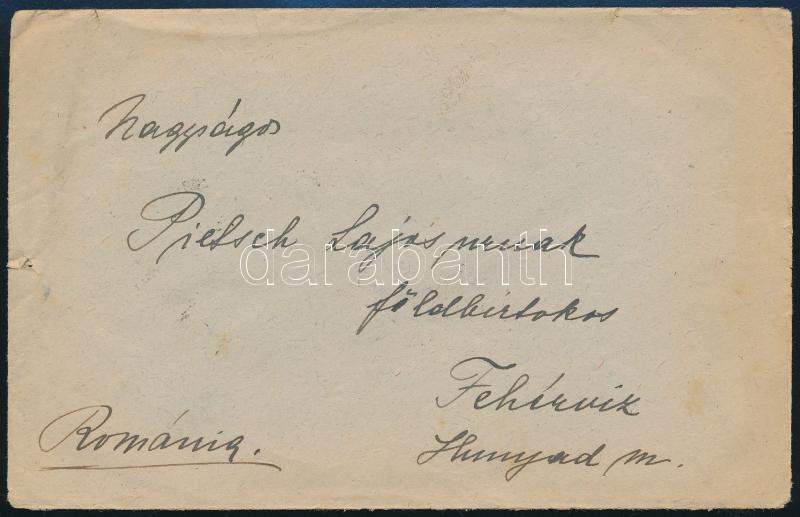 Nagyságos
Pietsch Lajos urnak
darabanth
földbirtokos
Fehérviz
Hunyad m.
Románia.